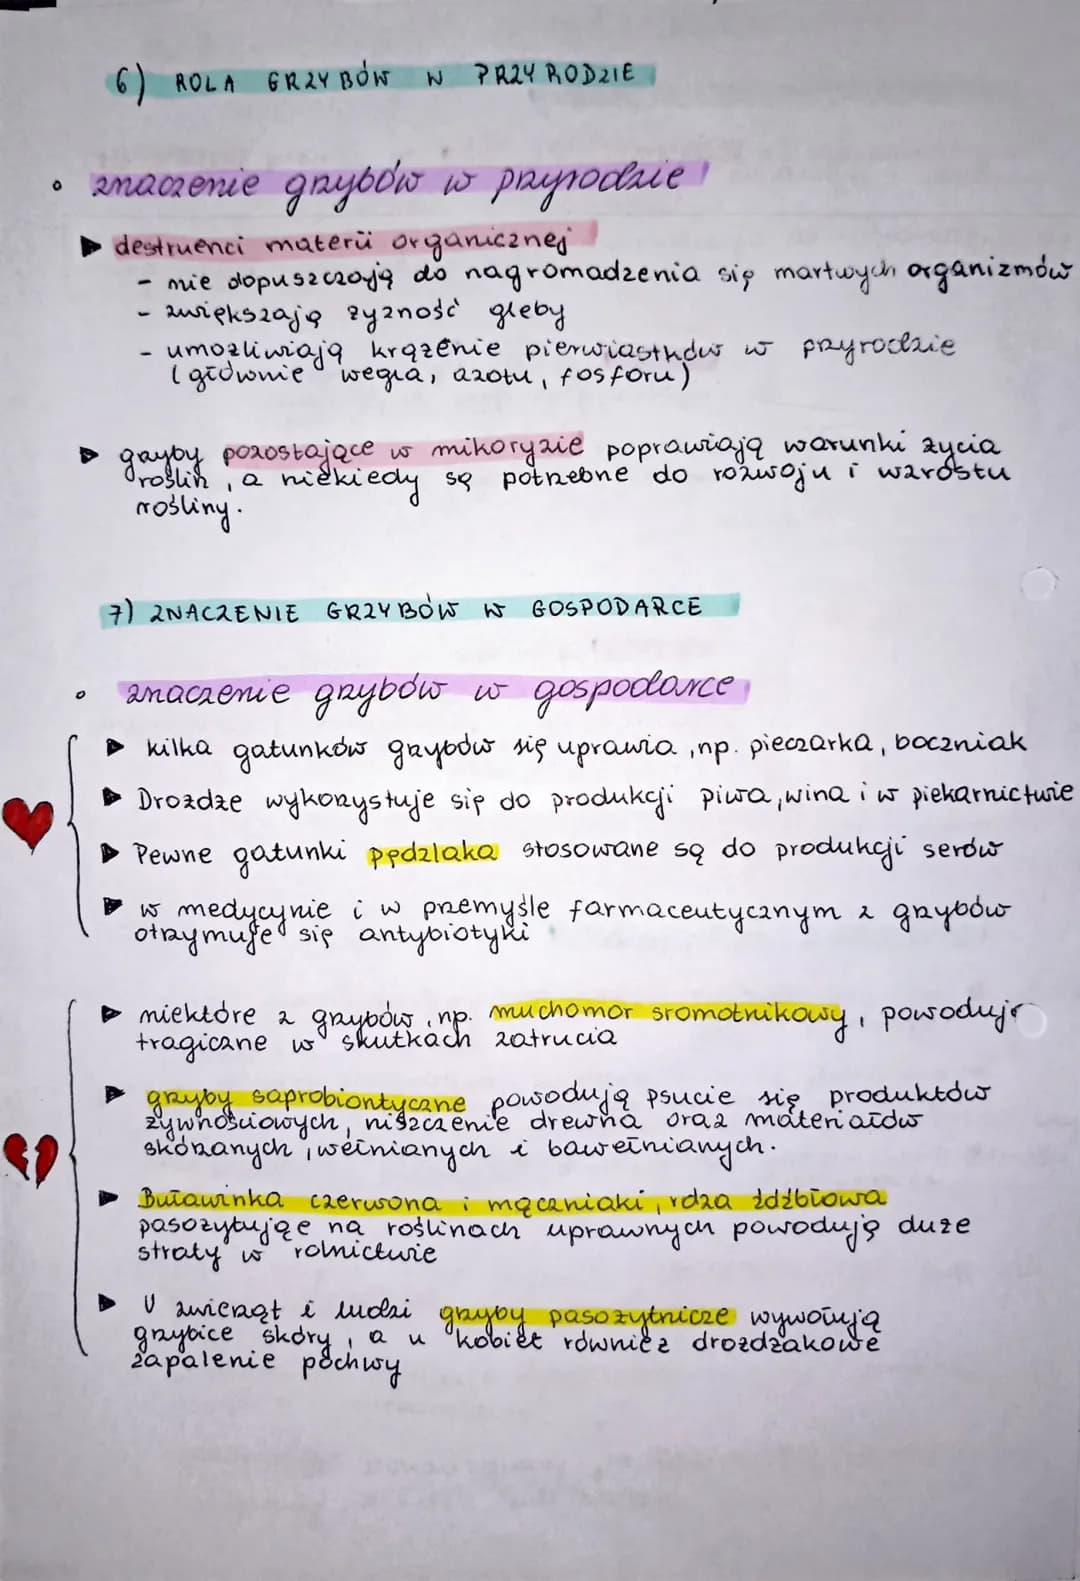 6) ROLA GRZYBÓW W PRZYRODZIE
• znaczenie grzybów w przyrodzie
▶ destruenci materii organicznej
- nie dopuszczają do nagromadzenia się martwych organizmów
- zwiększają żyzność gleby
- umożliwiają krążenie pierwiastków w przyrodzie
(głównie węgla, azotu, fosforu)
▶ grzyby pozostające w mikoryzie poprawiają warunki życia
roślin, a niekiedy są potrzebne do rozwoju i wzrostu
rośliny.
7) ZNACZENIE GRZYBÓW W GOSPODARCE
• znaczenie grzybów w gospodarce
▶ kilka gatunków grzybów się uprawia, np. pieczarka, boczniak
▶ Drożdże wykorzystuje się do produkcji piwa, wina i w piekarnictwie
▶ Pewne gatunki pędzlaka stosowane są do produkcji serów
▶ w medycynie i w przemyśle farmaceutycznym z grzybów
otrzymuje się antybiotyki
▶ niektóre z grzybów, np. muchomor sromotnikowy, powodują
tragiczne w skutkach zatrucia
▶ grzyby saprobiontyczne powodują psucie się produktów
żywnościowych, niszczenie drewna oraz materiałów
skórzanych, wełnianych i bawełnianych.
▶ Buławinka czerwona i mączniaki, rdza źdźbłowa
pasożytując na roślinach uprawnych powodują duże
straty w rolnictwie
▶ U zwierząt i ludzi grzyby pasożytnicze wywołują
grzybice skóry, a u kobiet również drożdżakowe
zapalenie pochwy